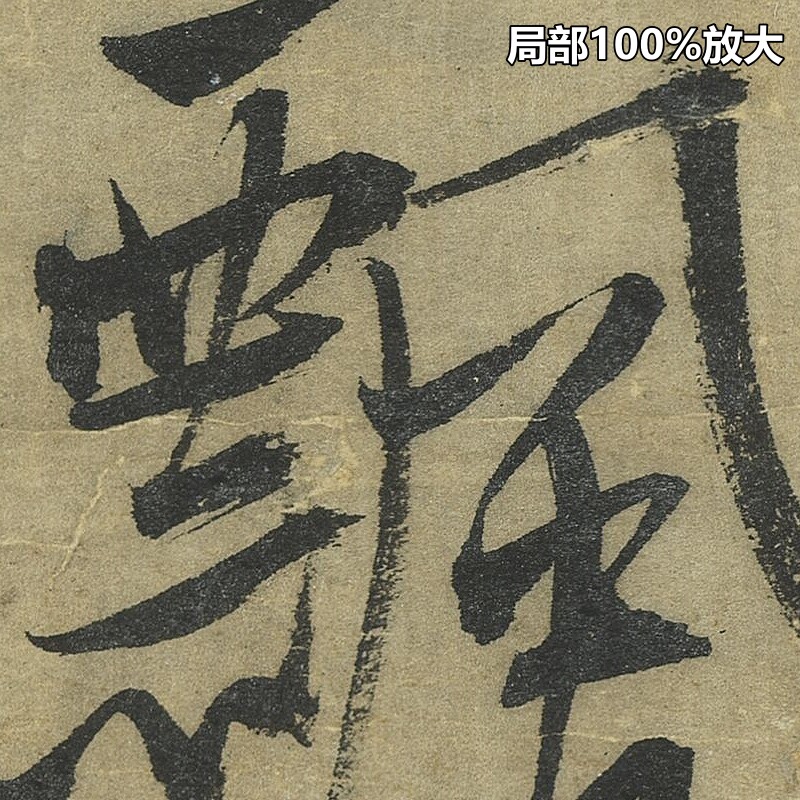 局部100%放大
飄